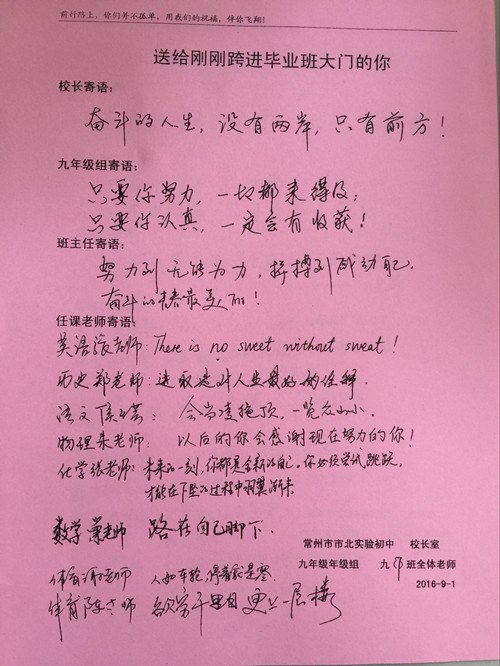 前行路上，你们并不孤单，用我们的祝福，伴你飞翔！
送给刚刚跨进毕业班大门的你
校长寄语：
奋斗的人生，没有两岸，只有前方！
九年级组寄语：
只要你努力，一切都来得及；
只要你认真，一定会有收获！
班主任寄语：
努力到无能为力，拼搏到感动自己.
奋斗的青春最美丽！
任课老师寄语：
英语张老师：There is no sweet without sweat！
历史郑老师：进取是对人生最好的诠释.
语文：会当凌绝顶，一览众山小.
物理朱老师：以后的你会感谢现在努力的你！
化学张老师：未来的一刻，你都是全新的自己，你必须尝试跳跃，
才能在下坠的过程中羽翼渐丰
数学 老师 路在自己脚下.
体育 老师 人如车轮，
体育陈老师 欲穷千里目 更上一层楼
常州市市北实验初中 校长室
九年级年级组 九 班全体老师
2016-9-1